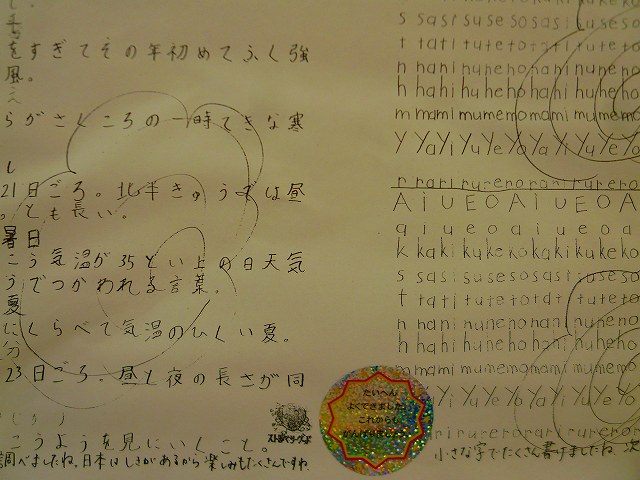 をすぎてその年初めてふく強
風。
らがさくころの一時てきな寒
し
21日ごろ。北半きゅうでは昼
。とも長い。
暑日
こう気温が35どい上の日天気
うでつかわれる言葉。
夏
にくらべて気温のひくい夏。
分
23日ごろ。昼と夜の長さが同
こうようを見にいくこと。
調べましたね。日本はしきがあるから楽しみもたくさんですね
たいへん
よくできました
これからも
s sasisusesosasisuseso
t tatitutetotatituteto
n naninunenonaninuneno
h hahihuhehohahihuheho
m mamimumemomamimumemo
y YaYiYuYeYoYaYiYuYeYo
r rarirurerorarirurero
A I U E O A I U E O A
a i u e o a i u e o a
k kakikukekokakikukeko
s sasisusesosasisuseso
t tatitutetotatituteto
n naninunenonaninuneno
h hahihuhehohahihuheho
m mamimumemomamimumemo
y YaYiYuYeYoYaYiYuYeYo
r rarirurerorarirurero
小さな字でたくさん書けましたね。次